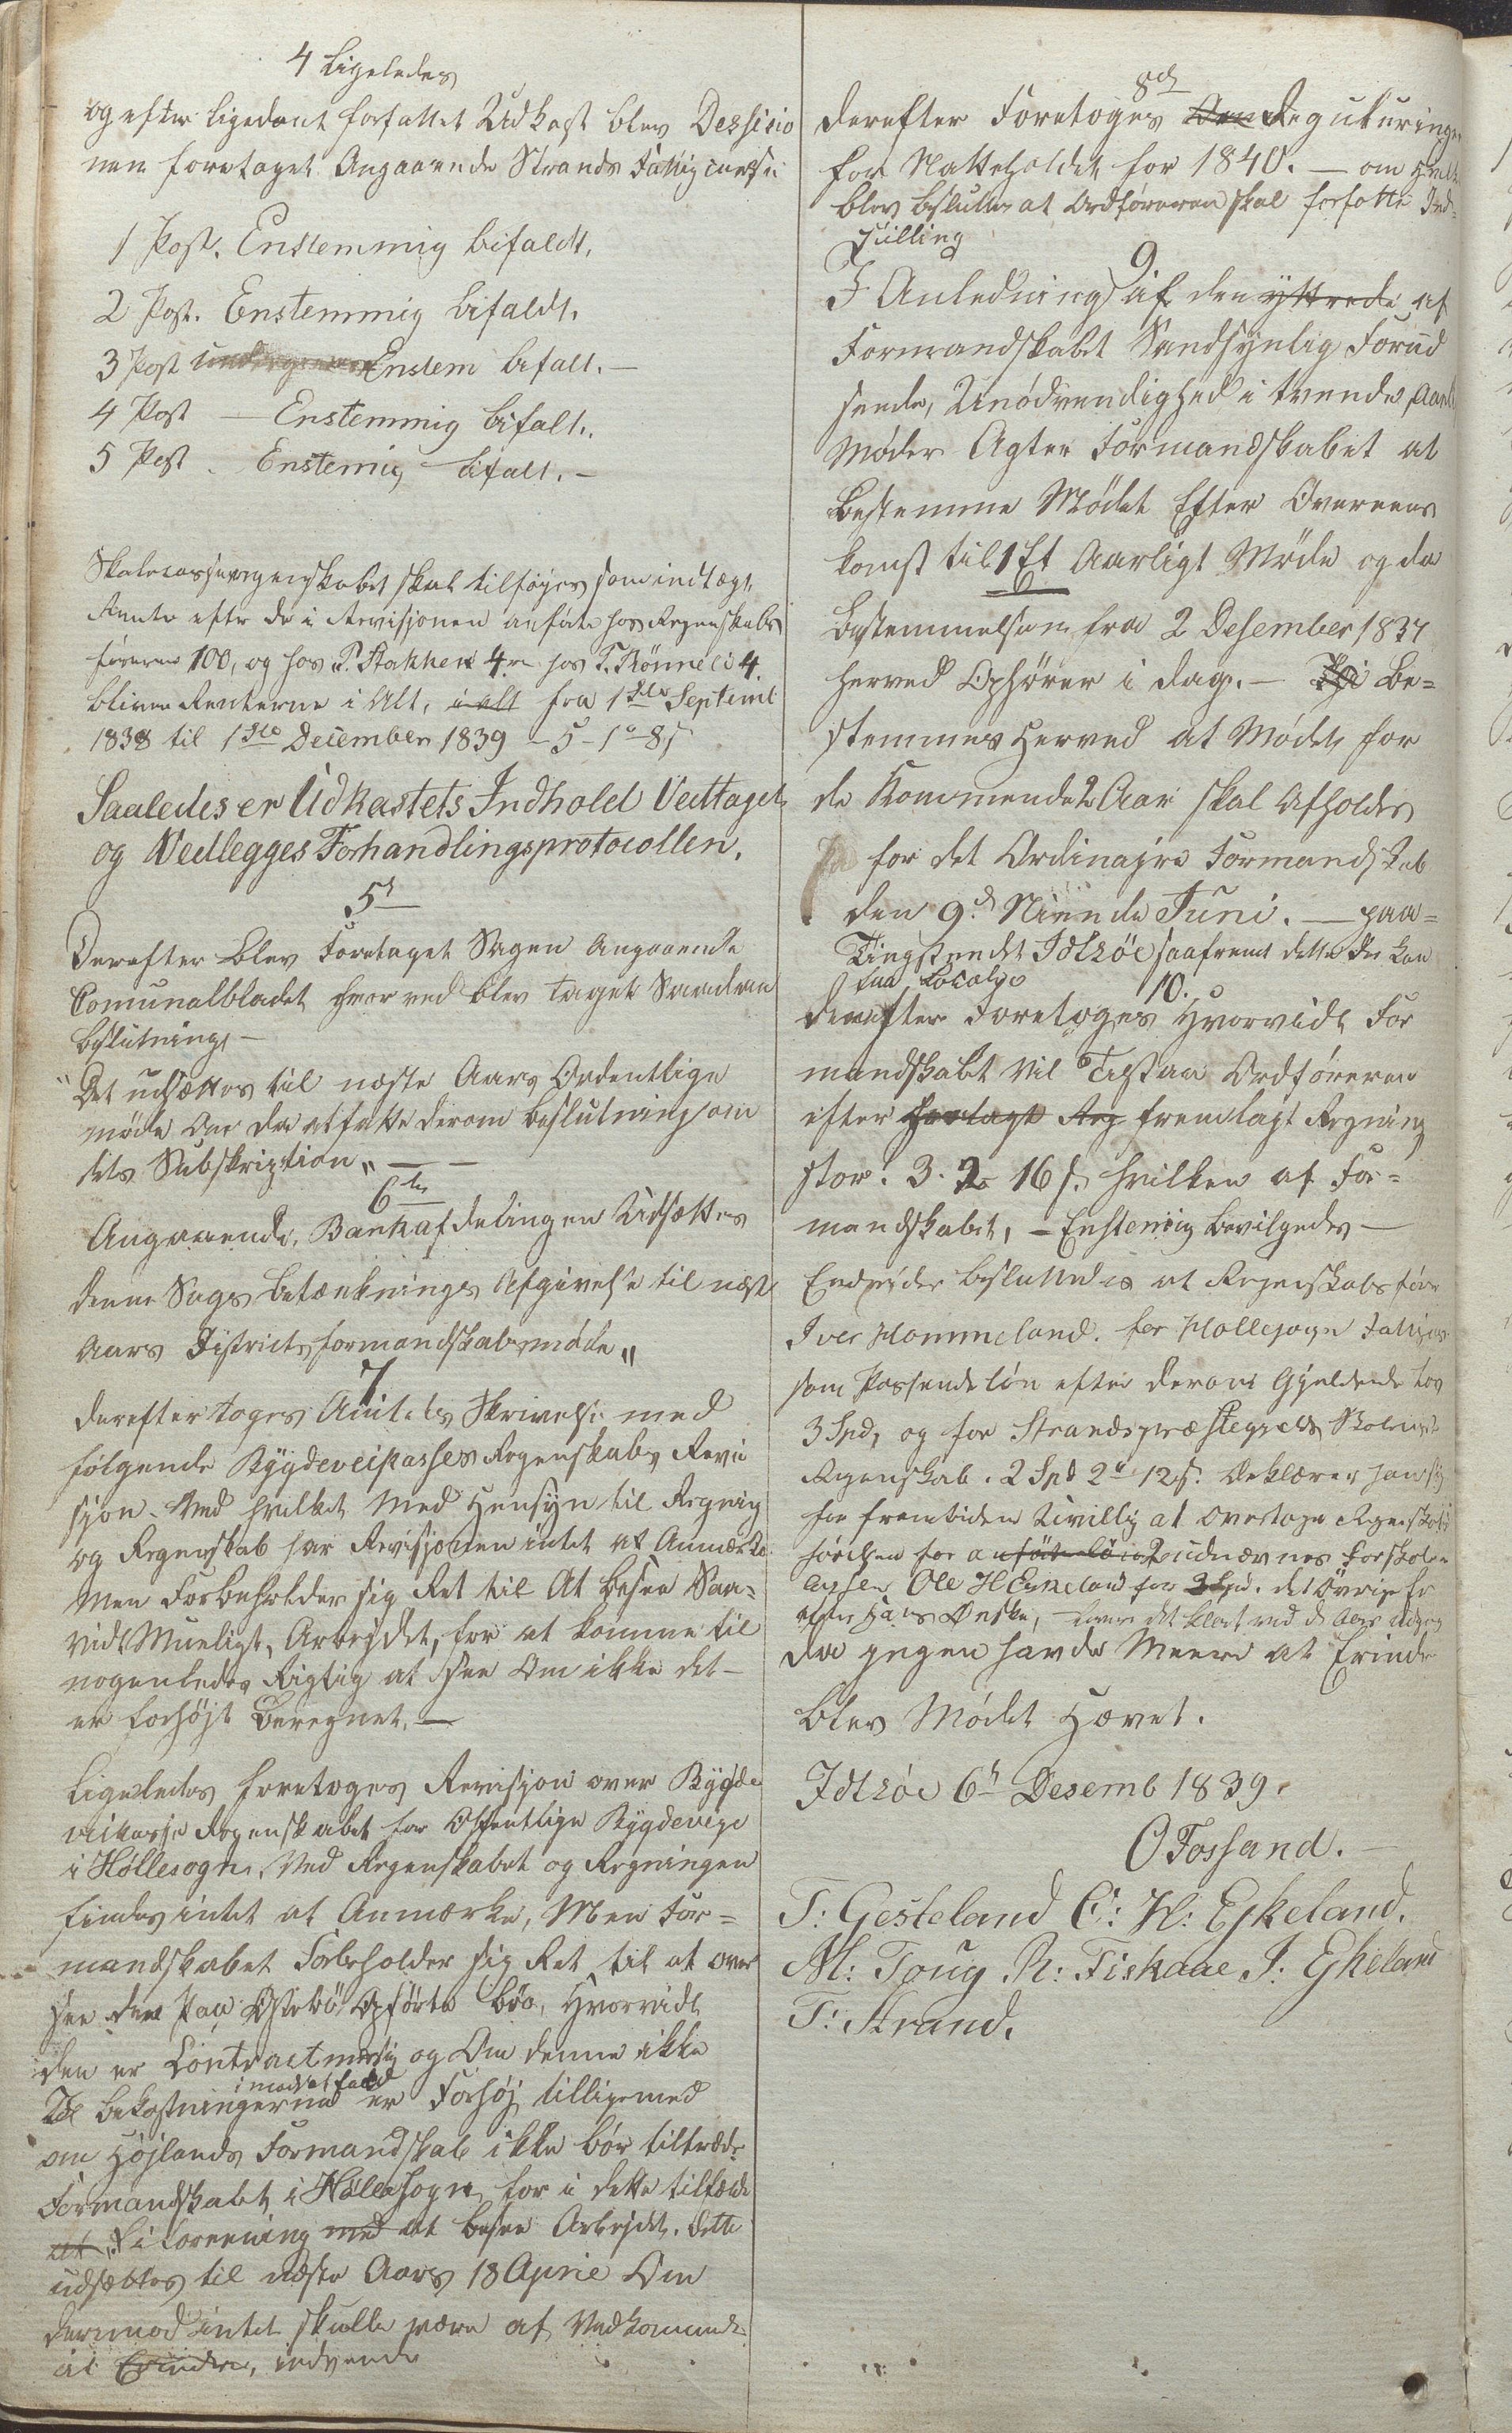 4 Ligeledes
og efter ligedant forfattet Udkast blev Dessisio
nen foretaget Angaaende Strands Fattigcasse
1 Post. Enstemmig bifaldt.
2 Post. Enstemmig bifaldt.
3 Post Enstem bifalt. —
4 Post — Enstemmig bifalt.
5 Post. Enstemig bifalt. —
Skolecasseregenskabet skal tilføyes som indtægt,
Rente efter de i Revisjonen anførte hos Regenskabs
føreren 100, og hos P. Stakken 4 hos T. Rönneli 4
bliver Renterne i Alt, i alt fra 1ste Septemb
1838 til 1ste December 1839 - 5 - 1 - 8 s
Saaledes er Udkastets Indhold Vedtaget
og Vedlegges Forhandlingsprotocollen.
5
Derefter blev Foretaget Sagen Angaaende
Comunalbladet hvorved blev taget Saadan
beslutning, —
"Det udsættes til næste Aars Ordentlige
møde da at fatte derom beslutning om
dets Subskription" —
6te
Angaaende Bankafdelingen Udsættes
denne Sags betænknings Afgivelse til næste
Aars Districtsformandskabsmøde"
7
derefter toges Amtets Skrivelse med
følgende Bygdeveikasses Regenskabs Revi
sjon. Ved hvilket med Hensyn til Regning
og Regenskab har Revisjonen intet at Anmærke
Men Forbeholder sig Ret til At besee Saa-
vidt Mueligt, Arbejdet, for at komme til
nogenledes Rigtig at see Om ikke det —
er forhöjt Beregnet. —
Ligeledes foretoges Revisjon over Bygde
veikasse Regenskabet for Offentlige Bygdeveye
i Höllesogn. Ved Regenskabet og Regningen
findes intet at Anmærke, Men For-
mandskabet Forbeholder sig Ret til at over
see den paa Opførte bro, Hvorvidt
den er Contractmæsig og Om denne ikke
i modsat fald
bekostningerne er Forhöj tilligemed
om Höjlands Formandskab ikke bör tiltræde
Formandskabet i Höllesogn for i dette tilfælde
at i Forening med at besee Arbejdet. dette
udsættes til næste Aars 18 April Om
dermod intet skulle være af Vedkommende
at Erindre, indvende
8de
derefter Foretoges Den Reguleringen
for Natteholdet for 1840. — om Hvilket
blev besluttet at Ordföreren skal forfatte Ind-
stilling
9
I Anledning af den yttrede af
Formandskabet Sandsynlig Forud
seende, Unödvendighed i tvende Aarlige
Møder Agter Formandskabet at
bestemme Mödet Efter Overeens
komst til 1 Et Aarligt Møde og da
bestemmelsen fra 2 Desember 1837
herved Ophører i dag. — Be-
stemmes Herved at Mødet for
de Kommende 2 Aar skal Afholdes
for det Ordinajre Formandskab
den 9de Niende Juni. — paa-
Tingstedet Idtzöe saafremt dette der kan
faa Localye
10.
derefter Foretoges Hvorvidt For
mandskabt vil Tilstaa Ordföreren
efter fremlagt Regning
stor. 3. 2 16 s. hvilken af For-
mandskabet, — Enstemig bevilgedes —
Endvider besluttedes at Regenskabsförer
Iver Hommeland. for Hollesogn Fattigcas
som Passende lön efter derom Gjeldende Lov
3 Spd, og for Strandspræstegjelds Skolecasse
Regenskab. 2 Spd 2 12 s. Deklærer han sig
for fremtiden Uvillig at Overtage Regenskabs
förelsen for anförte lön, udnævnes for Skole
cassen Ole H Eskeland for 3 Spd. det övrige
efter Hans Ønske,
da Ingen havde Meere at Erindre
blev Mødet Hævet.
Idtzöe 6te Desemb 1839.
O Fossand. —
T: Gesteland C: H: Eskeland.
M: Toug R: Fiskaae J: Eskeland
T: Strand.